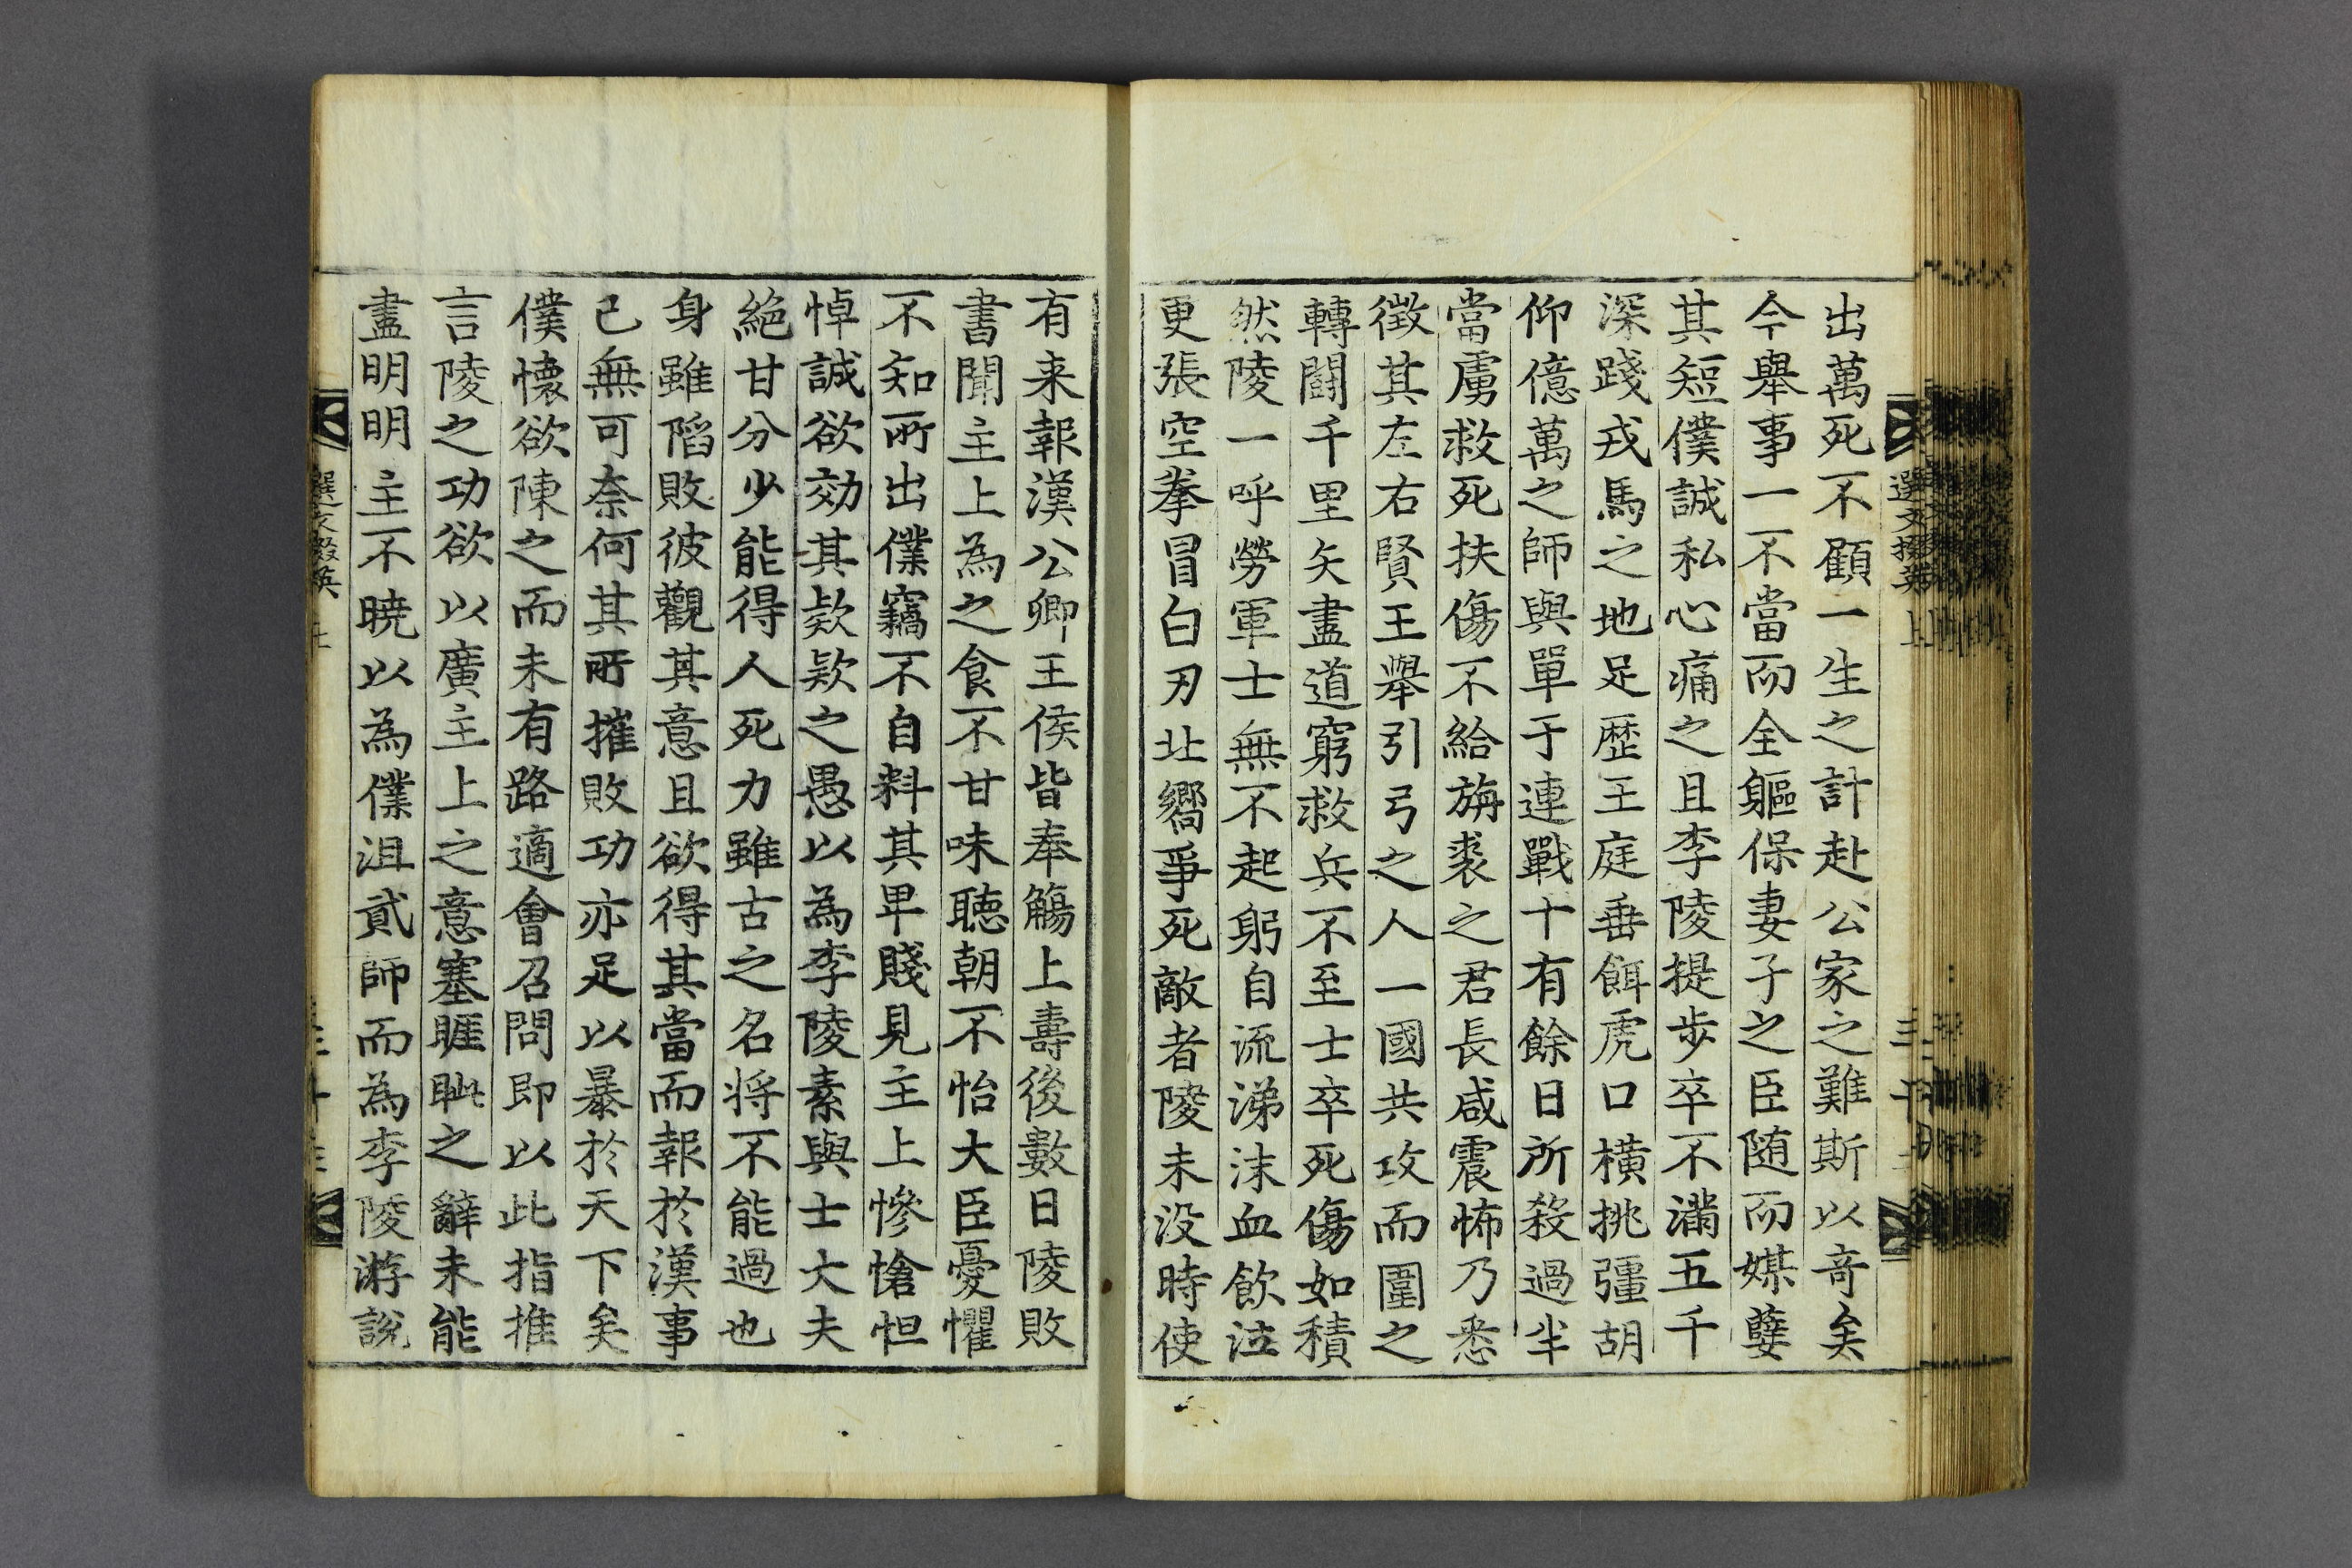 出萬死不顧一生之計赴公家之難斯以奇矣
今舉事一不當而全軀保妻子之臣随而媒孽
其短僕誠私心痛之且李陵提步卒不滿五千
深踐戎馬之地足歷王庭垂餌虎口橫挑彊胡
仰億萬之師與單于連戰十有餘日所殺過半
當虜救死扶傷不給旃裘之君長咸震怖乃悉
徵其左右賢王舉引弓之人一國共攻而圍之
轉鬪千里矢盡道窮救兵不至士卒死傷如積
然陵一呼勞軍士無不起躬自流涕沫血飲泣
更張空拳冒白刃北嚮爭死敵者陵未没時使
選文掇英上
有来報漢公卿王侯皆奉觴上壽後數日陵敗
書聞主上為之食不甘味聽朝不怡大臣憂懼
不知所出僕竊不自料其卑賤見主上慘愴怛
悼誠欲効其款款之愚以為李陵素與士大夫
絕甘分少能得人死力雖古之名将不能過也
身雖陷敗彼觀其意且欲得其當而報於漢事
已無可奈何其所摧敗功亦足以暴於天下矣
僕懷欲陳之而未有路適會召問即以此指推
言陵之功欲以廣主上之意塞睚眦之辭未能
盡明明主不曉以為僕沮貳師而為李陵游說
選文掇英